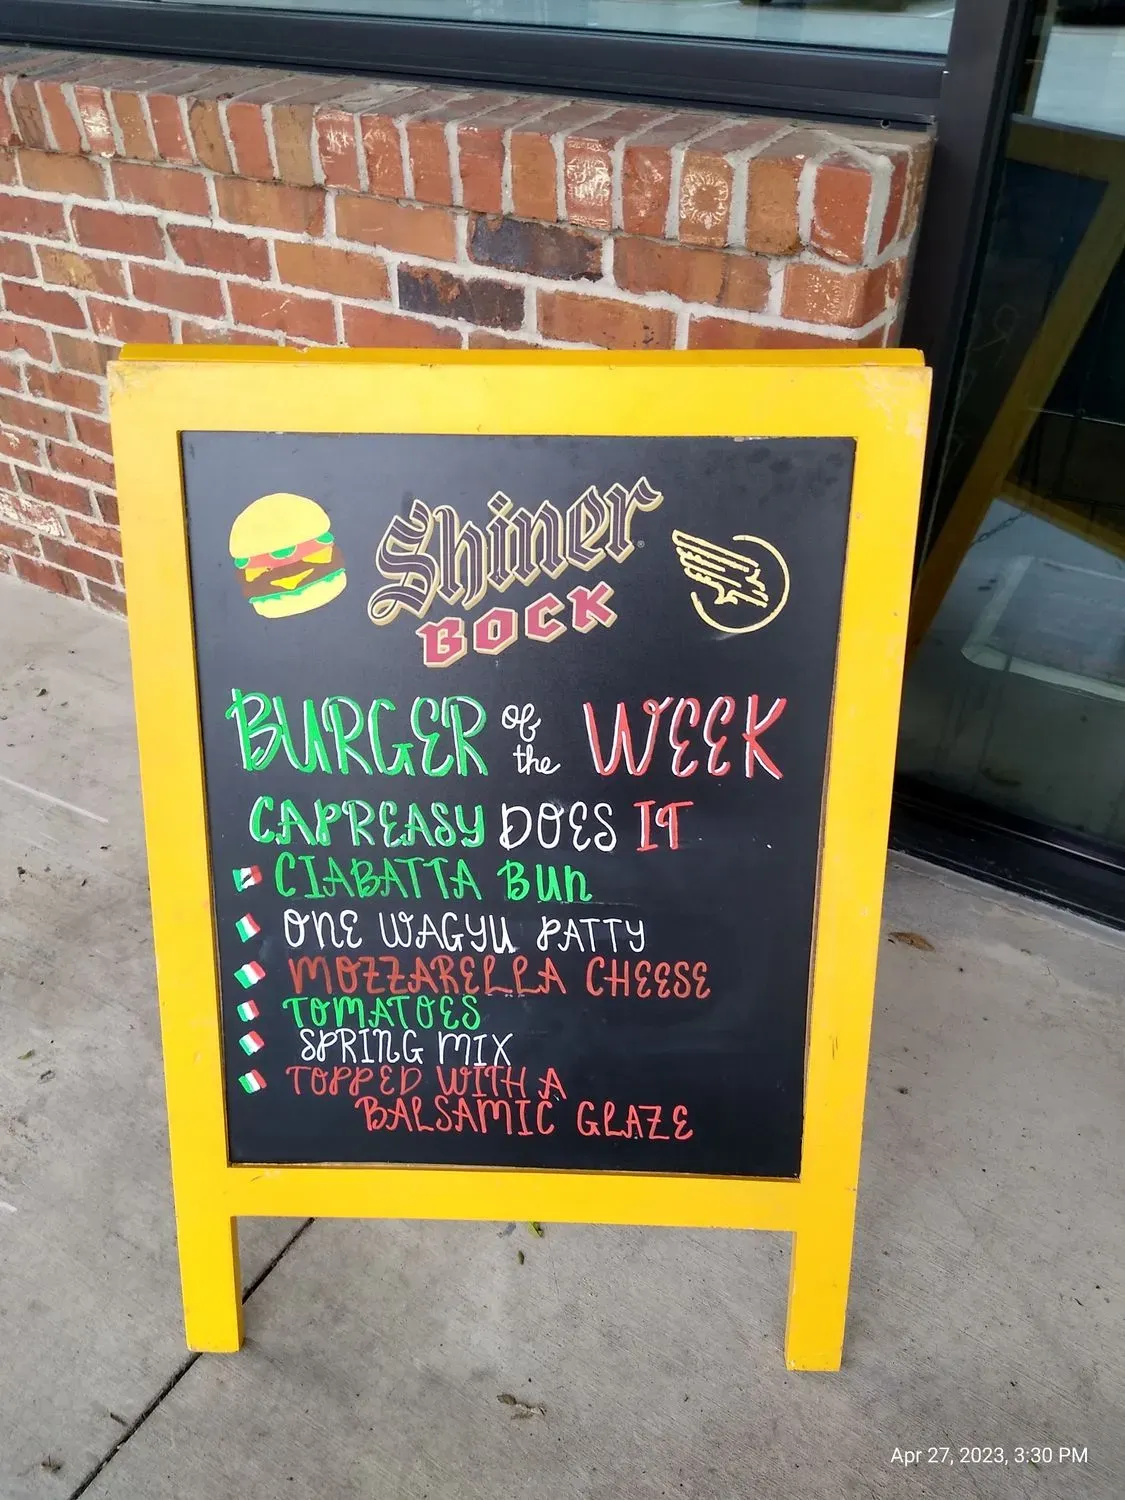 Shiner
BOCK
BURGER of the WEEK
CAPREASY DOES IT
CIABATTA BUn
OnE WAGYU PATTY
MOZZARELLA CHEESE
TOMATOES
SPRING MIX
TOPPED WITH A
BALSAMIC GLAZE
Apr 27, 2023, 3:30 PM